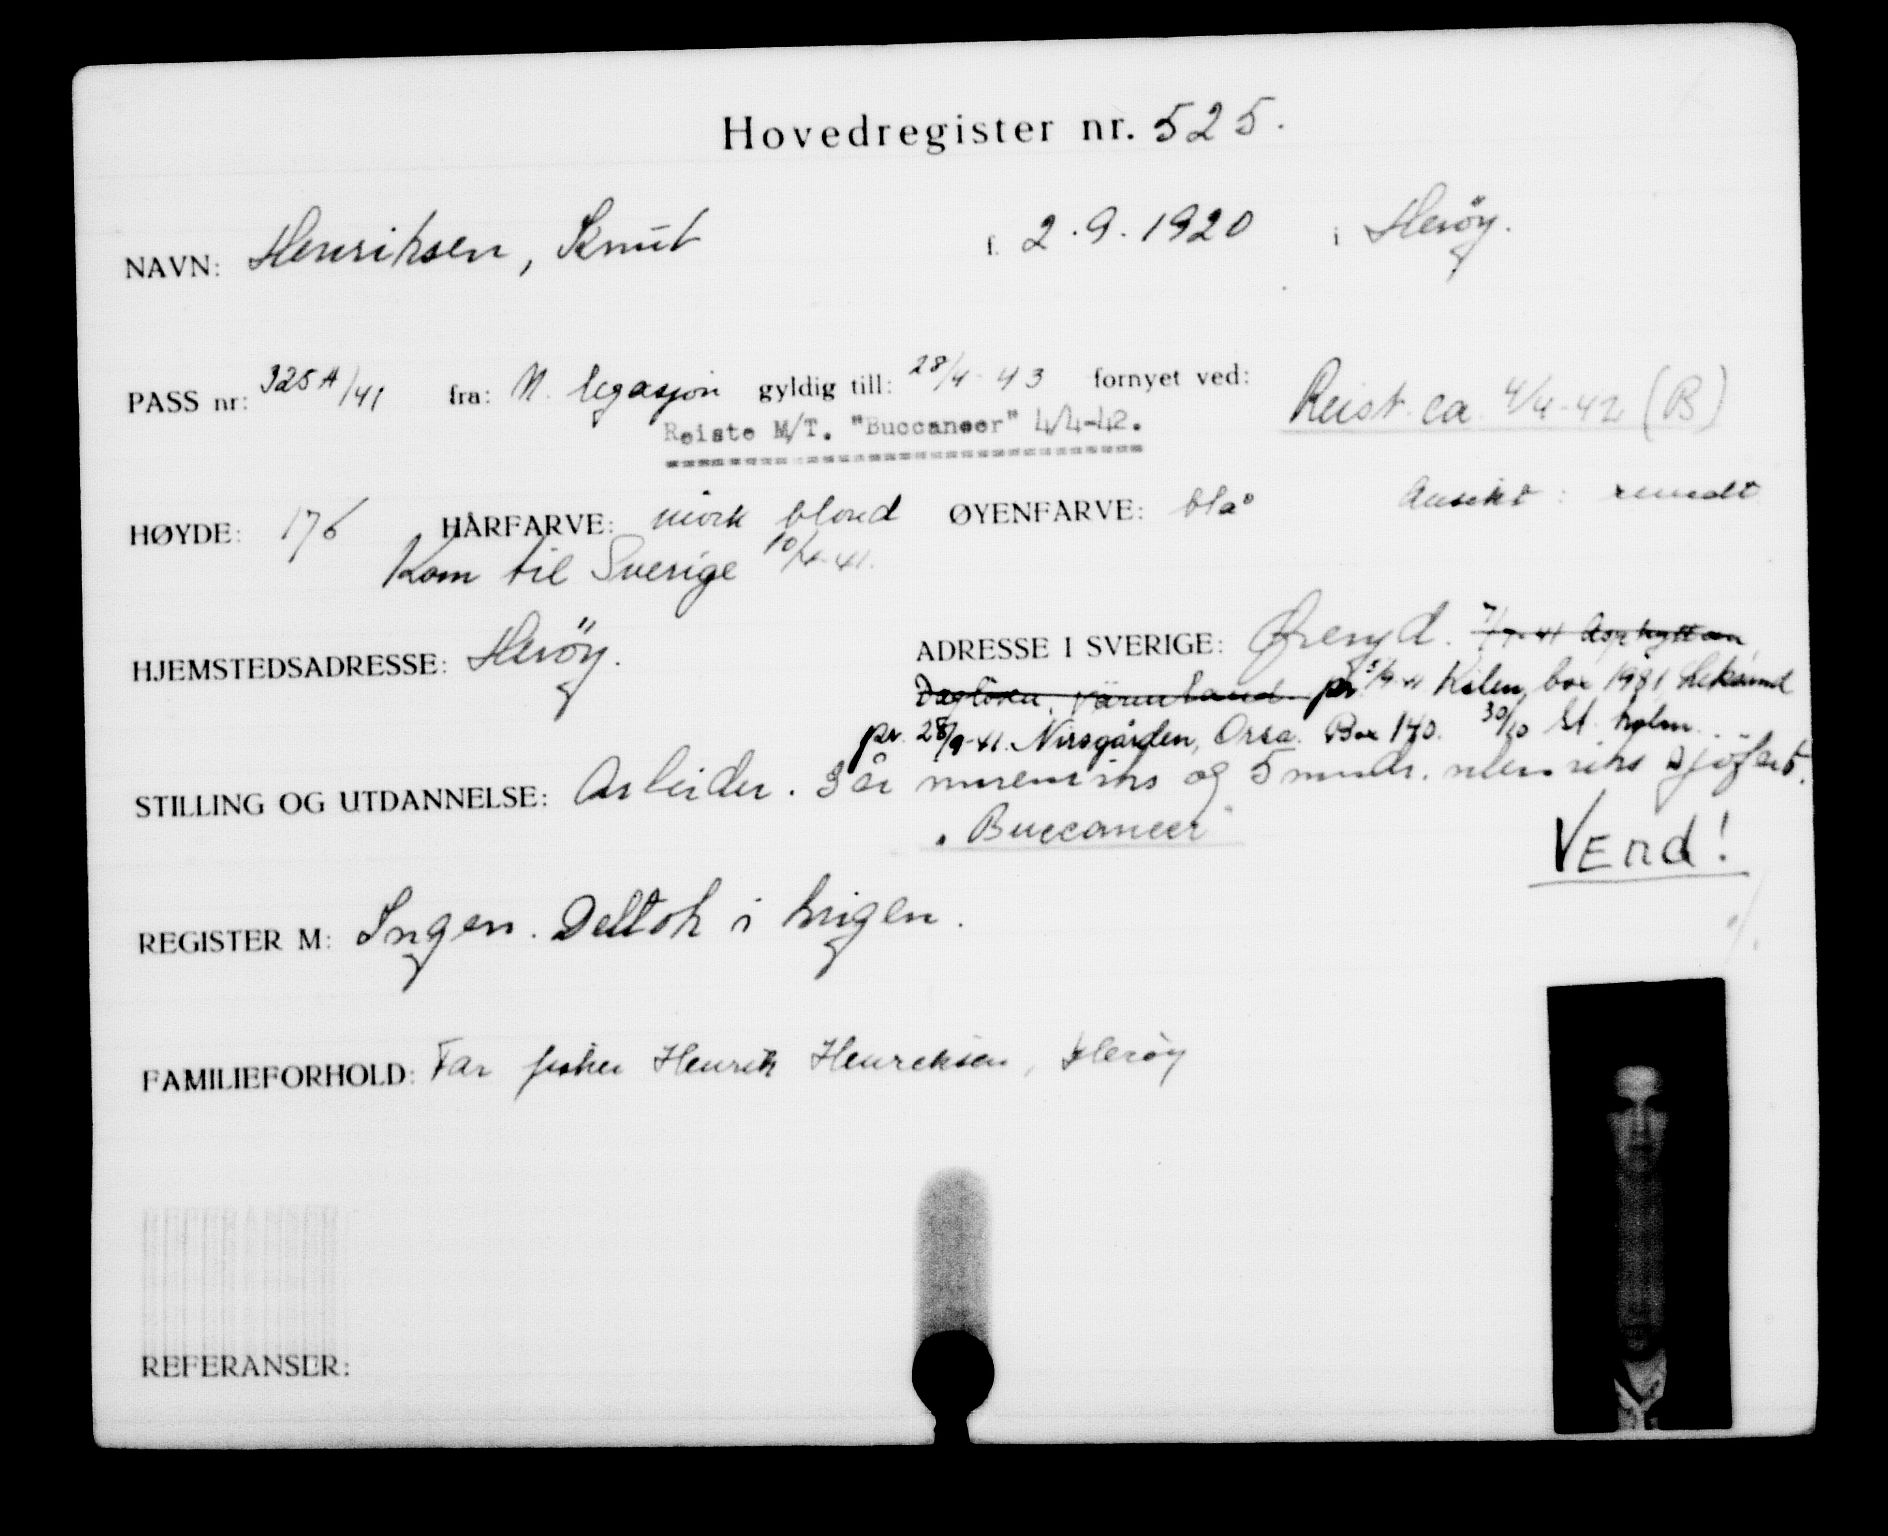 Hovedregister nr. 525.
NAVN: Henriksen, Knut f. 2.9.1920 i Heröy.
PASS nr: 325A/41 fra: N. legasjon gyldig till: 28/4-43 fornyet ved:
Reiste M/T. "Buccaneer" 4/4-42.
Reist ca 4/4-42 (B)
HØYDE: 176 HÅRFARVE: mörk blond ØYENFARVE: blå Ansikt: rundt
Kom til Sverige 10/4-41.
HJEMSTEDSADRESSE: Heröy. ADRESSE I SVERIGE: Øreryd. 7/7-41 Asphyttan
Daglösen, Värmland pr 5/9-41 Kilen, box 1981 Leksand
pr. 28/9-41. Nirsgården, Orsa. Box 140. 30/10 St.holm.
STILLING OG UTDANNELSE: Arbeider. 3 år innenriks og 5 mndr. utenriks sjöfart.
"Buccaneer"
VEnd!
REGISTER M: Ingen. Deltok i krigen.
FAMILIEFORHOLD: Far fisker Henrik Henriksen, Heröy
REFERANSER: